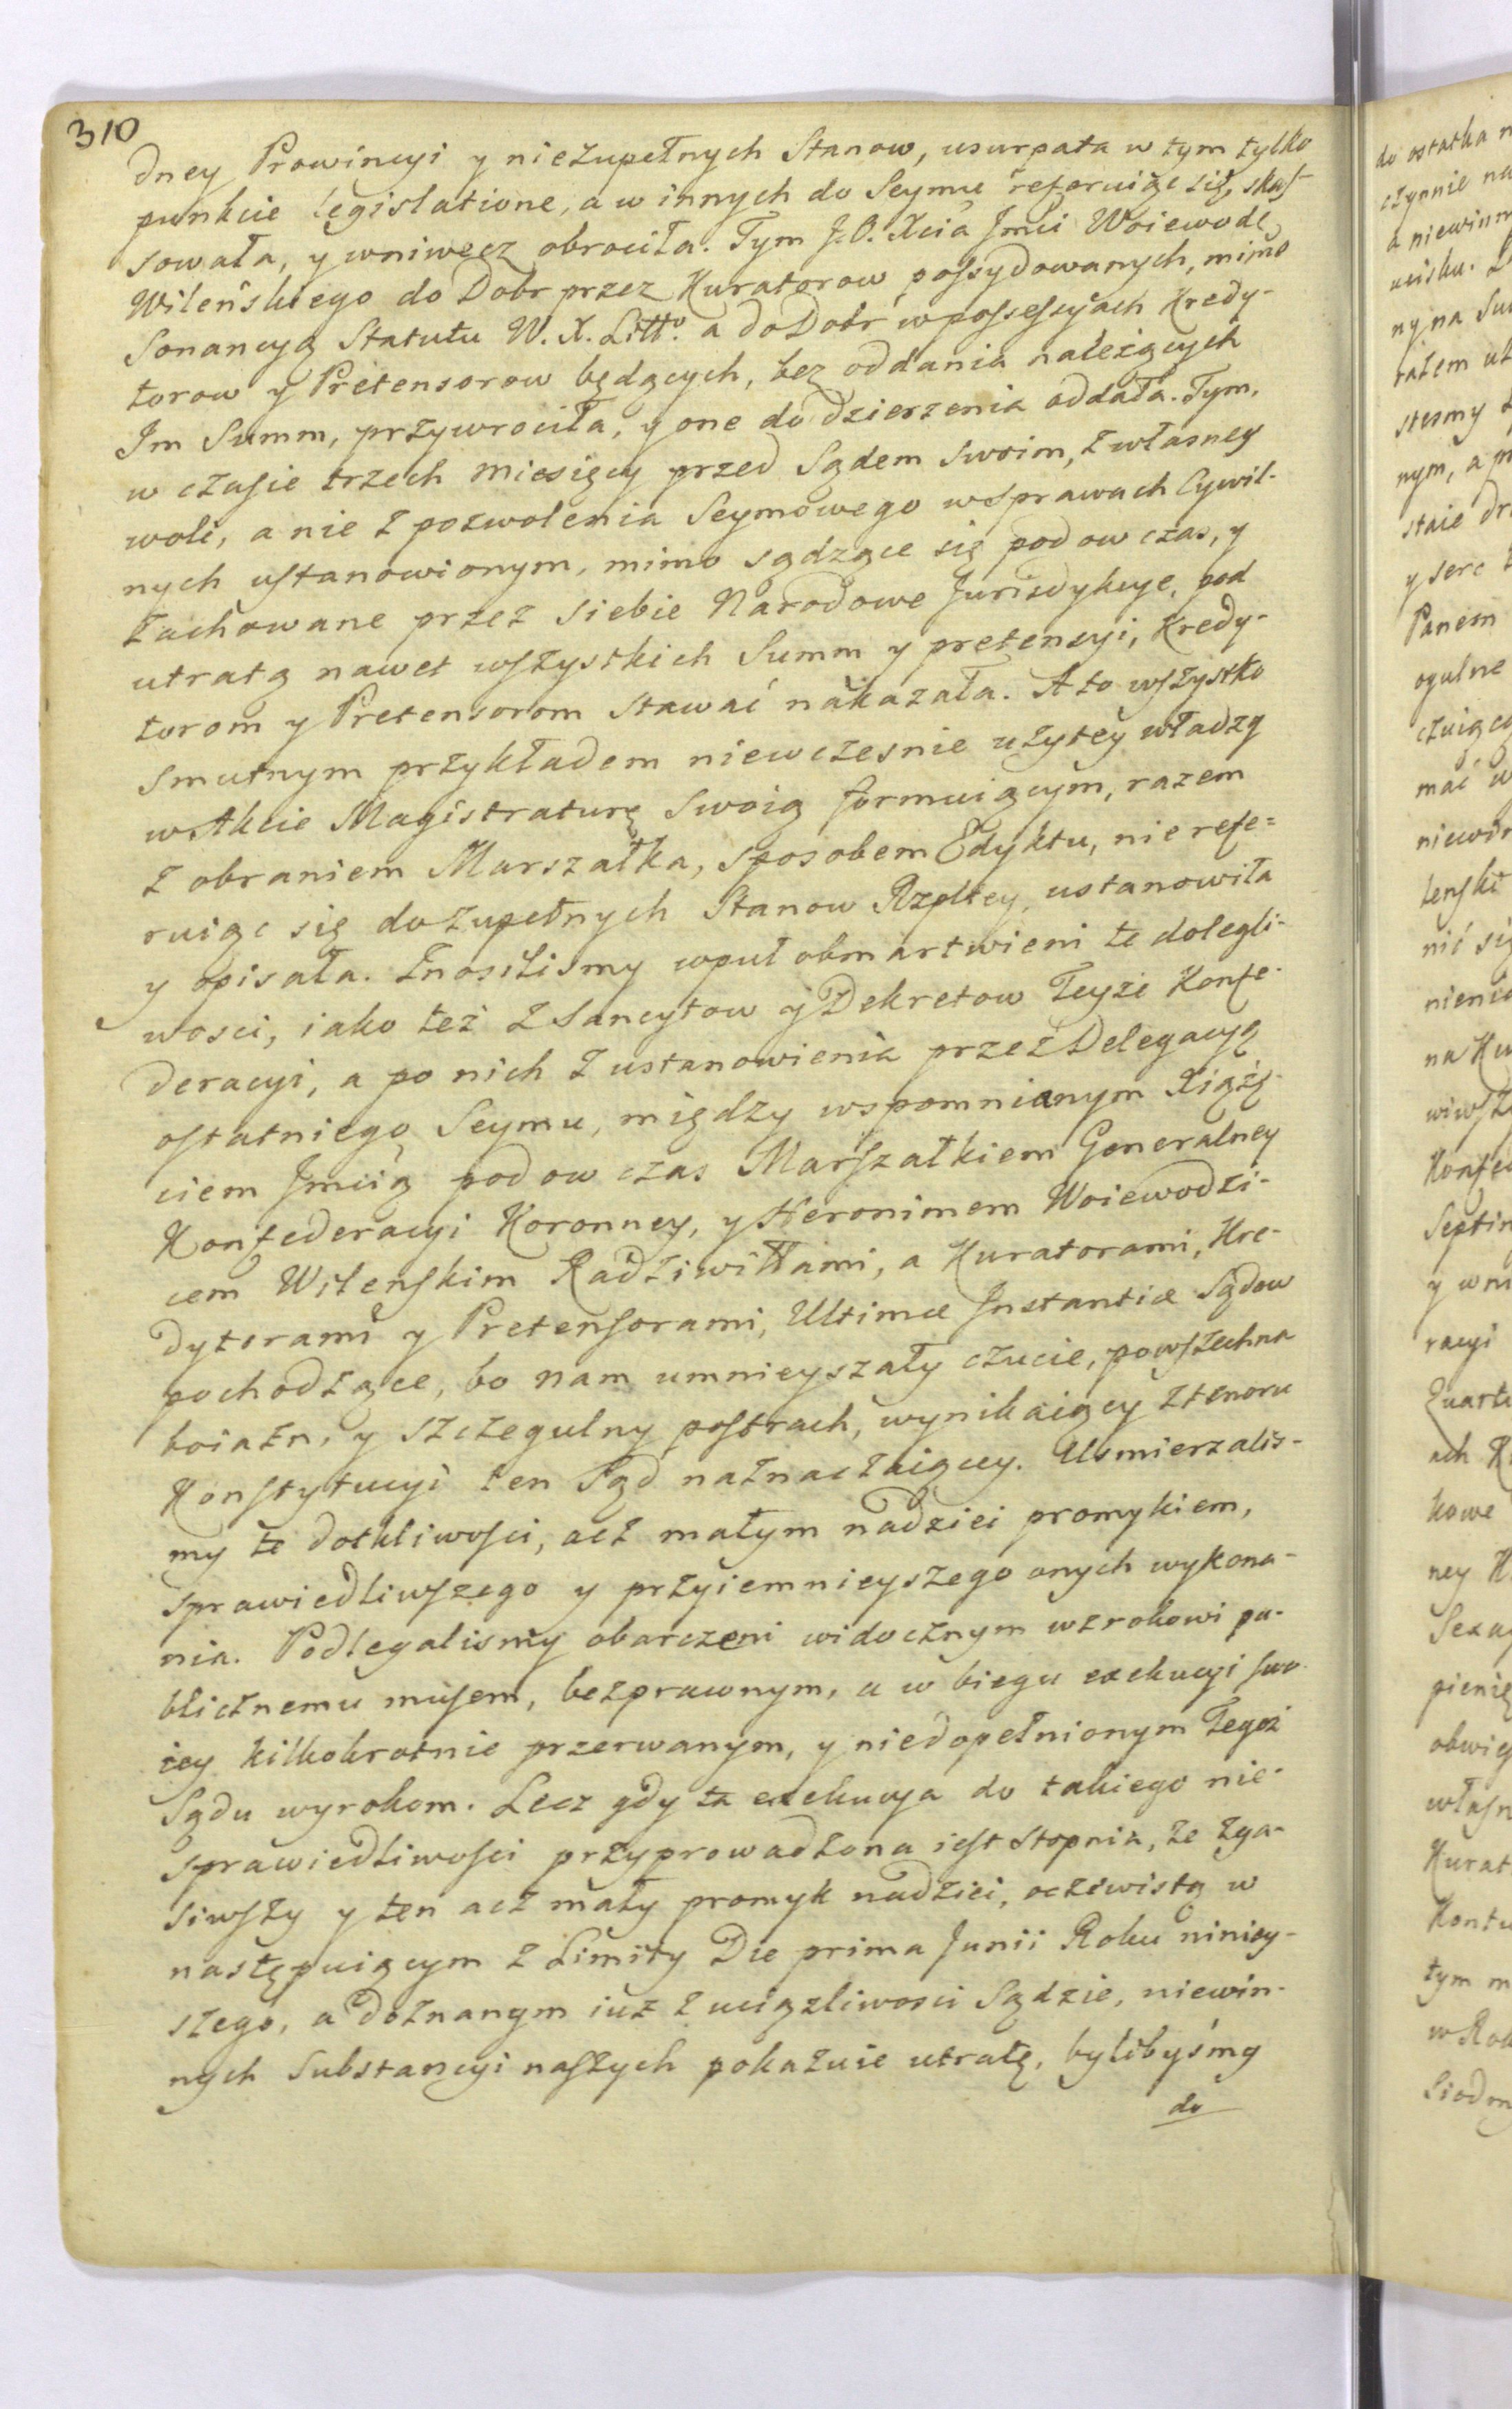 310
dney Prowincyi y niezupełnych Stanow, usurpata w tym tylko
punkcie legislatione, a w innych do Seymu referuiąc się, skas-
sowała, y wniwecz obrociła. Tym J.O. Xcia Jmći Woiewodę
Wileńskiego do Dobr przez Kuratorow possydowanych, mimo
Sonancyą Statutu W. X. Litt<sup>o</sup>. a do Dobr w possessyach Kredy-
torow y Pretensorow będących, bez oddania należących
Im Summ, przywrociła, y one do dzierzenia oddała. Tym,
w czasie trzech miesięcy przed Sądem swoim, z własney
woli, a nie z pozwolenia Seymowego w sprawach Cywil-
nych ustanowionym, mimo sądzące się pod ow czas, y
zachowane przez siebie Narodowe Jurisdykcye, pod
utratą nawet wszystkich Summ y pretensyi, Kredy-
torom y Pretensorom stawać nakazała. A to wszystko
smutnym przykładem niewczesnie użytey władzy
w Akcie Magistraturę swoią formuiącym, razem
z obraniem Marszałka, sposobem Edyktu, nie refe=
ruiąc się do zupełnych Stanow Rzpltey, ustanowiła
y opisała. Znosilismy wpuł obmartwieni te dolegli-
wosci, iako też z Sancytow y Dekretow Teyże Konfe-
deracyi, a po nich z ustanowienia przez Delegacyą
ostatniego Seymu, między wspomnianym Xiążę-
ciem Jmcią pod ow czas Marszałkiem Generalney
Konfederacyi Koronney, y Heronimem Woiewodzi-
cem Wilenskim Radziwiłłami, a Kuratorami, Kre-
dytorami y Pretensorami, Ultimæ Instantiæ Sądow
pochodzące, bo nam umnieyszały czucie, powszechna
boiazn, y szczegulny postrach, wynikaiący z tenoru
Konstytucyi ten Sąd naznaczaiącey. Usmierzalis-
my te dotkliwosci, acz małym nadziei promykiem,
sprawiedliwszego y przyiemnieyszego onych wykona-
nia. Podlegalismy obarczeni widocznym wzrokowi pu-
blicznemu musem, bezprawnym, a w biegu exekucyi swo-
iey kilkokrotnie przerwanym, y niedopełnionym Tegoż
Sądu wyrokom. Lecz gdy ta exekucya do takiego nie-
sprawiedliwosci przyprowadzona iest stopnia, że zga-
siwszy y ten acz mały promyk nadziei, oczewistą w
następuiącym z Limity Die prima Junii Roku niniey-
szego, a doznanym iuż z uciązliwosci Sądzie, niewin-
nych Substancyi naszych pokazuie utratę, bylibyśmy
do